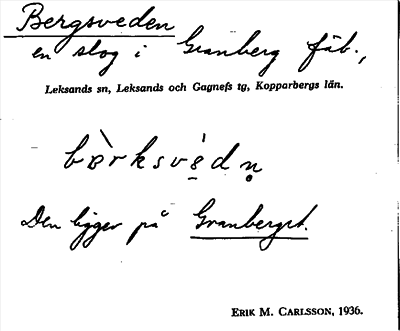 Bergsveden
en slog i Granberg fäb.,
Leksands sn, Leksands och Gagnefs tg, Kopparbergs län.
bὲrksvèdn̥
Den ligger på Granberget.
ERIK M. CARLSSON, 1936.